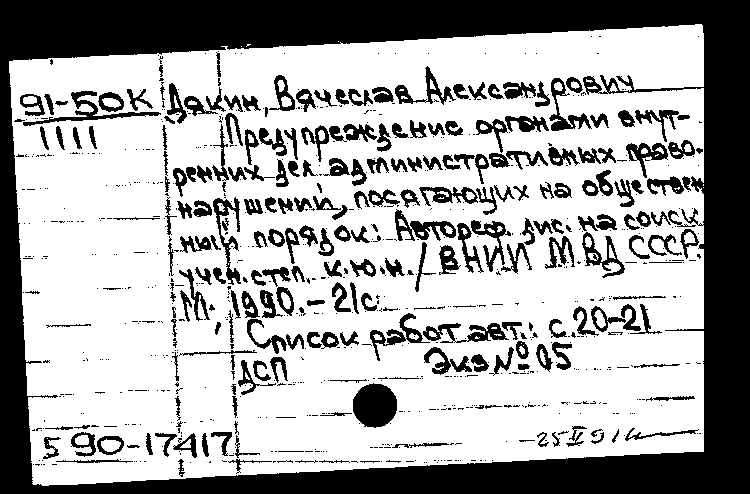 91-50К Дякин, Вячеслав Александрович
1111
Предупреждение органами внут-
ренних дел административных право-
нарушений, посягающих на обществен
ный порядок: Автореф. дис. на соиск.
учен. степ. к.ю.н. / ВНИИ МВД СССР.-
М., 1990. - 21с
Список работ авт.: с. 20-21
ДСП Экз № 05
5 90-17417